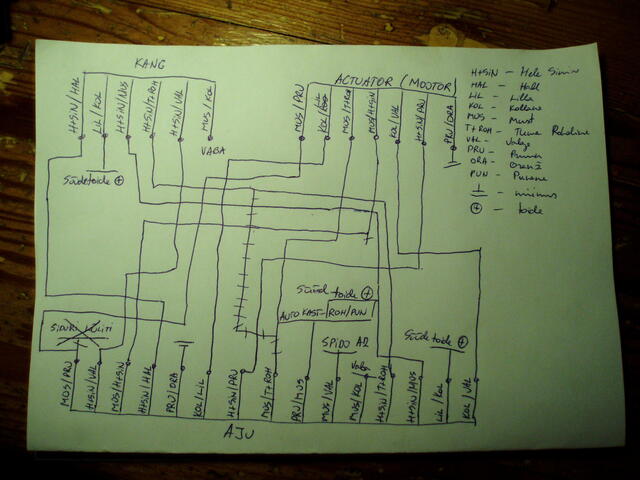 KANG
H+SiN/HAL
LiL/KOL
H+SiN/MUS
H+SiN/T+ROH
H+SiN/VAL
MUS/KOL
VABA
Süütetoide +
ACTUATOR/MOOTOR
MUS/PRU
KOL/LiL
MUS/T+ROH
MUS/H+SiN
KOL/VAL
H+SiN/PRU
PRU/ORA
H+SiN - Hele Sinin
HAL - Hall
LiL - Lilla
KOL - Kollane
MUS - Must
T+ROH - Tume Roheline
VAL - Valge
PRU - Pruun
ORA - Oranž
PUN - Punane
- miinus
+ - toide
SIDURI LÜLITI
Süüde toide +
AUTO KAST - ROH/PUN
SPIDO A2
Vaba
Süüdetoide +
MUS/PRU
H+SiN/VAL
MUS/H+SiN
H+SiN/HAL
PRU/ORA
KOL/LiL
H+SiN/PRU
MUS/T+ROH
PRU/MUS
MUS/VAL
MUS/KOL
H+SiN/T+ROH
H+SiN/MUS
LiL/KOL
KOL/VAL
AJU